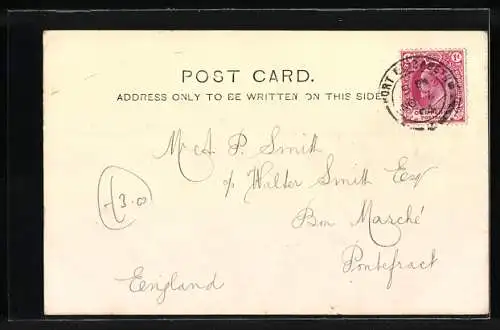 POST CARD.
ADDRESS ONLY TO BE WRITTEN ON THIS SIDE
PORT ELIZABETH
1d
A. P. Smith
c/o Walter Smith Esq
Bon Marché
Pontefract
Eengland
3.0